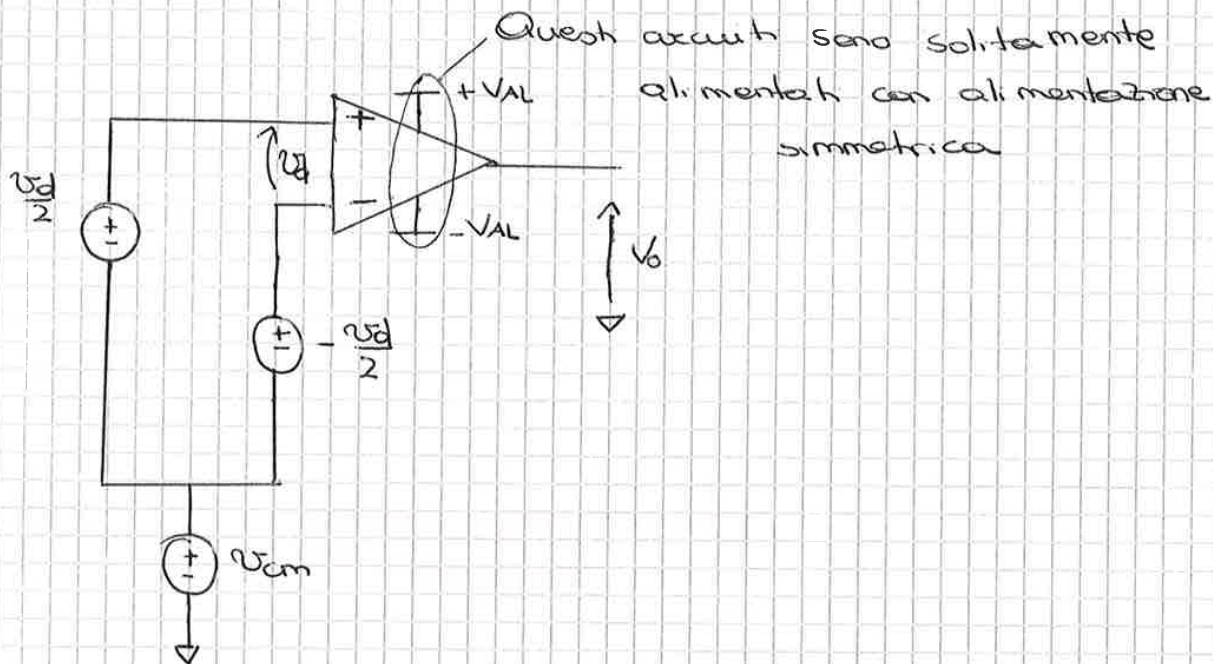 Questi circuiti sono solitamente
alimentati con alimentazione
simmetrica
+ VAL
+
vd
-
- VAL
vd
2
+
-
Vo
+
-
- vd
2
+
-
vcm